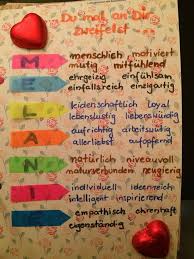 Du mal an Dir
zweifelst
M
menschlich motiviert
mutig mitfühlend
E
ehrgeizig einfühlsam
einfallsreich einzigartig
L
leidenschaftlich loyal
lebenslustig liebenswürdig
A
aufrichtig arbeitswütig
allerliebst aufopfernd
N
natürlich niveauvoll
naturverbunden neugierig
I
individuell ideenreich
intelligent inspirierend
E
empathisch ehrenhaft
eigenständig